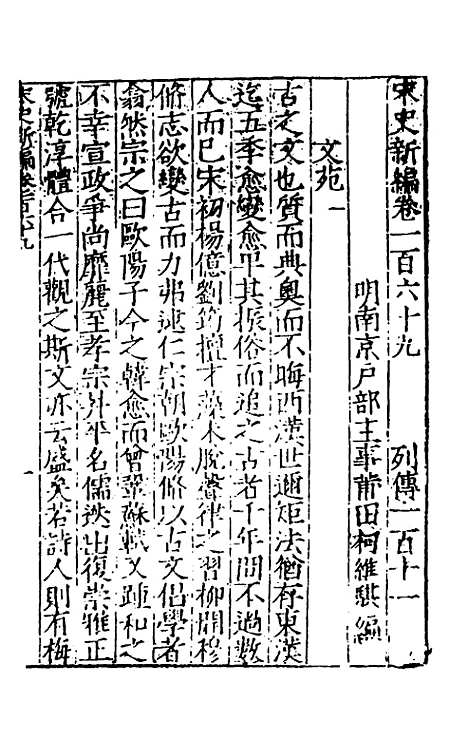 宋史新編卷一百六十九　列傳一百十一
明南京戶部主事莆田柯維騏編
文苑一
古之文也質而典奧而不晦西漢世邇矩法猶存東漢
迄五季愈變愈卑其振俗而追之古者千年間不過數
人而已宋初楊億劉筠擅才藻未脫聲律之習柳開穆
脩志欲變古而力弗逮仁宗朝歐陽脩以古文倡學者
翕然宗之曰歐陽子今之韓愈而曾鞏蘇軾又踵和之
不幸宣政爭尚靡麗至孝宗外平名儒迭出復崇雅正
號乾淳體合一代觀之斯文亦云盛矣若詩人則有梅
宋史新編卷一百六九
一